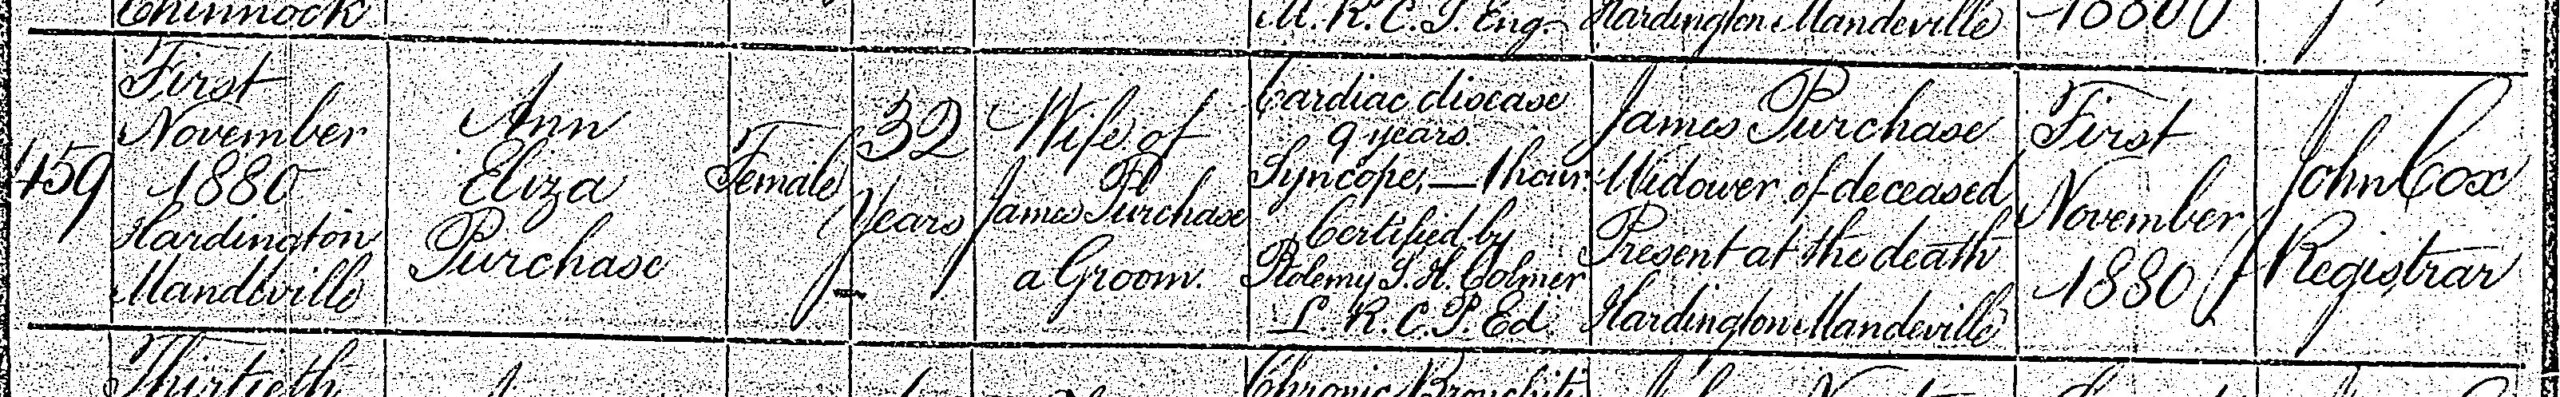 Chinnock
M. R. C. S. Eng.
Hardington Mandeville
1880
459
First
November
1880
Hardington
Mandeville
Ann
Eliza
Purchase
Female
32
Years
Wife of
James Purchase
a Groom.
Cardiac disease
9 years
Syncope, — 1 hour
Certified by
Ptolemy S. H. Colmer
L. R. C. P. Ed.
James Purchase
Widower of deceased
Present at the death
Hardington Mandeville
First
November
1880
John Cox
Registrar
Thirtieth
Chronic Bronchitis